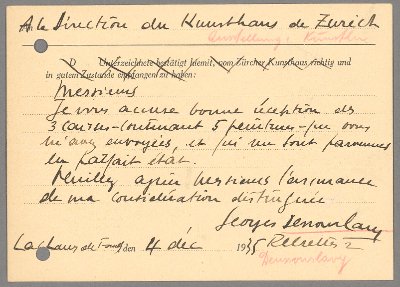 A la Direction du Kunsthaus de Zurich
Ausstellung: Künstler
D Unterzeichnete bestätigt hiemit, vom Zürcher Kunsthaus richtig und
in gutem Zustande empfangen zu haben:
Messieurs
Je vous accuse bonne réception des
3 caisses contenant 5 peintures que vous
m'avez envoyées, et qui me sont parvenues
en parfait état.
Veuillez agréer Messieurs l'assurance
de ma considération distinguée
Georges
La Chaux de Fonds, den 4 déc 1935